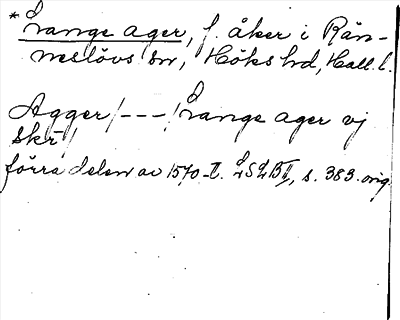 * Lange ager, f. åker i Rän-
neslövs sn, Höks hd, Hall. l.
Agger/---/Lange ager vj
skr/
förra delen av 1570-t. LSLBII, s. 383. orig.